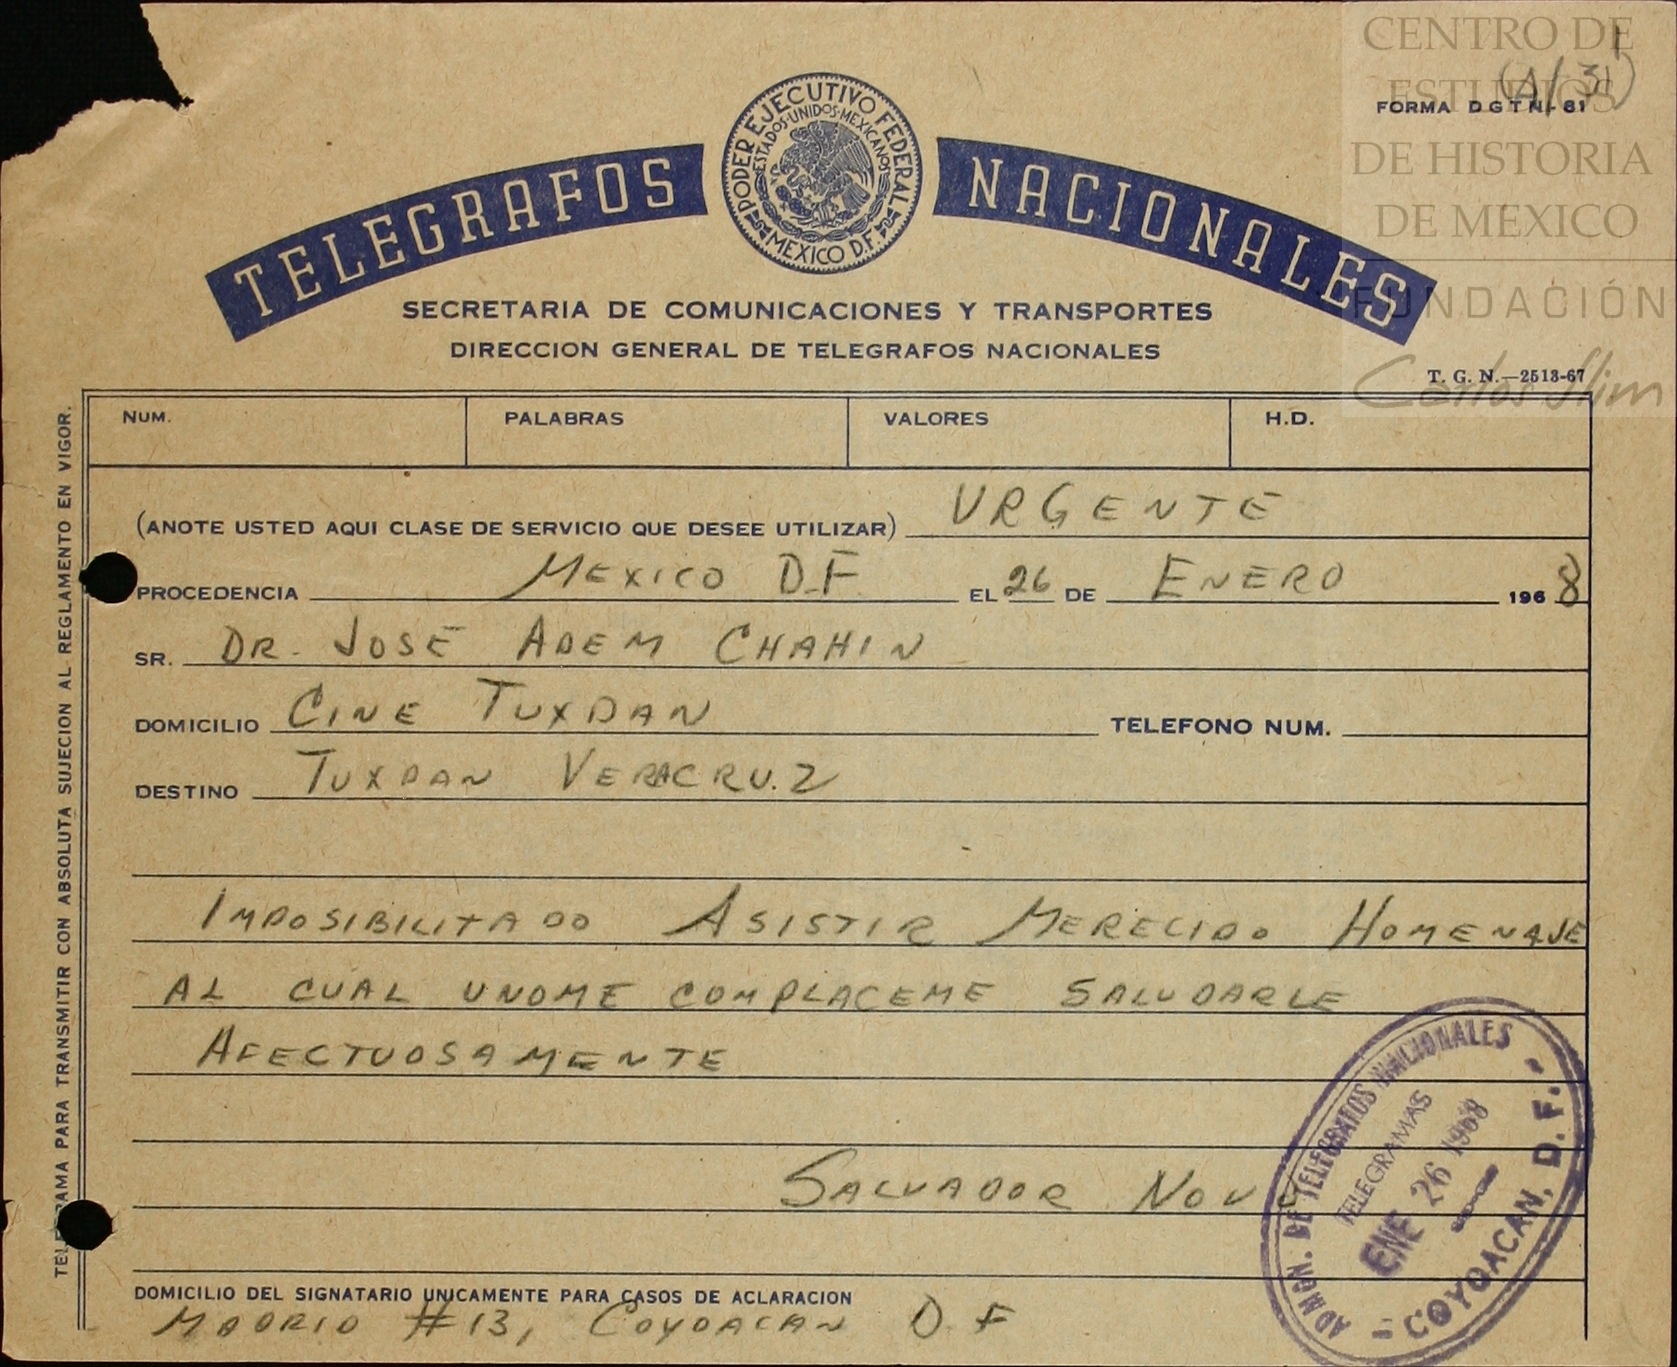 CENTRO DE
ESTUDIOS
DE HISTORIA
DE MEXICO
FUNDACIÓN
Carlos Slim
(A/31)
FORMA DGTN-61
TELEGRAFOS NACIONALES
PODER EJECUTIVO FEDERAL
ESTADOS UNIDOS MEXICANOS
MEXICO D.F.
SECRETARIA DE COMUNICACIONES Y TRANSPORTES
DIRECCION GENERAL DE TELEGRAFOS NACIONALES
T. G. N.—2513-67
NUM. PALABRAS VALORES H.D.
(ANOTE USTED AQUI CLASE DE SERVICIO QUE DESEE UTILIZAR) URGENTE
PROCEDENCIA MEXICO D.F. EL 26 DE ENERO 1968
SR. DR. JOSE ADEM CHAHIN
DOMICILIO CINE TUXPAN TELEFONO NUM.
DESTINO TUXPAN VERACRUZ
IMPOSIBILITADO ASISTIR MERECIDO HOMENAJE
AL CUAL UNOME COMPLACEME SALUDARLE
AFECTUOSAMENTE
SALVADOR NOVO
DOMICILIO DEL SIGNATARIO UNICAMENTE PARA CASOS DE ACLARACION
MADRID #13, COYOACAN D.F
TELEGRAMA PARA TRANSMITIR CON ABSOLUTA SUJECION AL REGLAMENTO EN VIGOR.
ADMON. DE TELEGRAFOS NACIONALES
TELEGRAMAS
ENE 26 1968
- COYOACAN, D. F. -